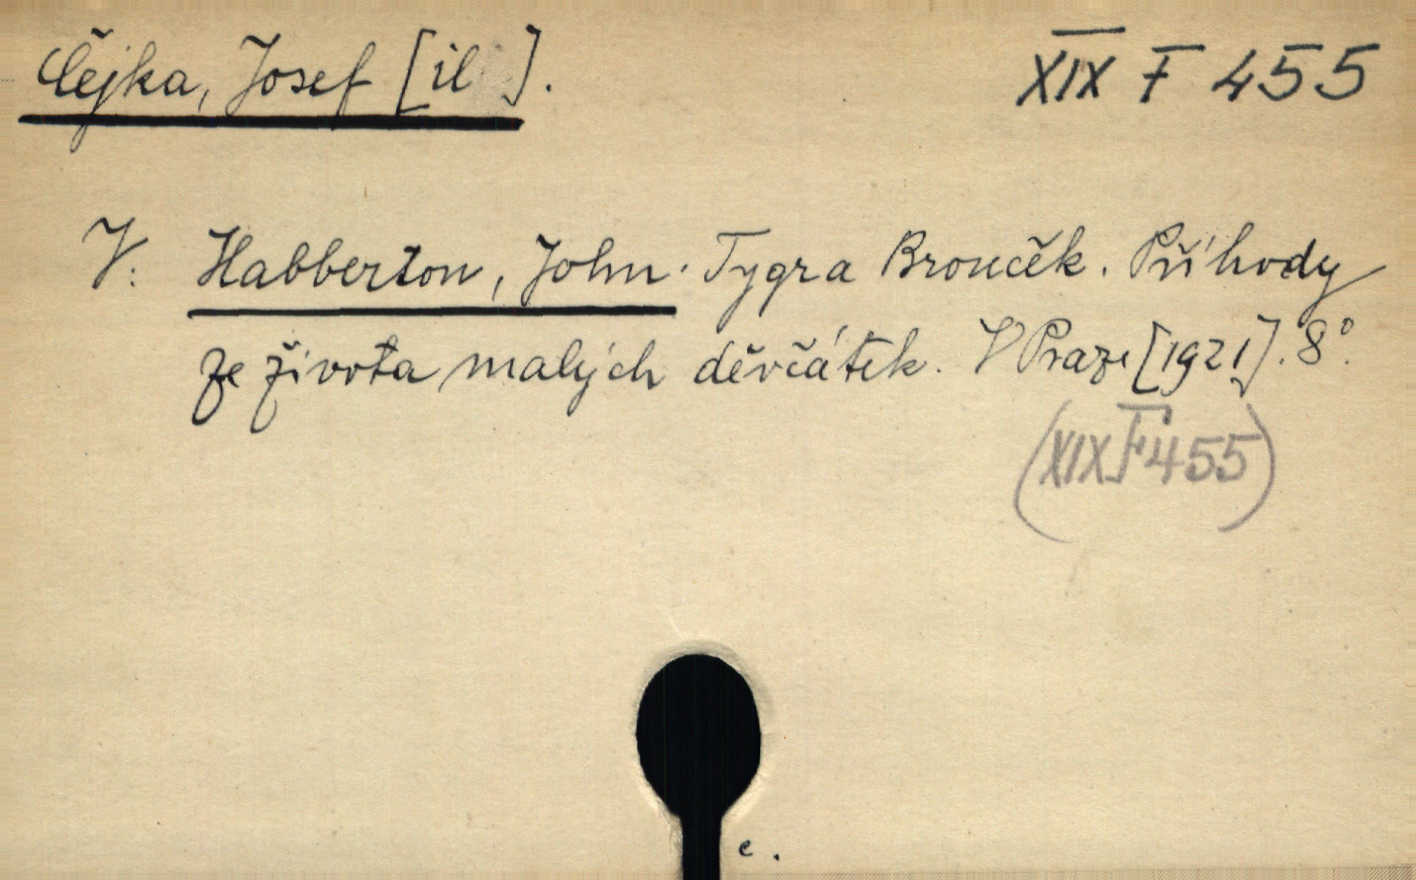 Čejka, Josef [il ]. XIX F 455
V: Habberton, John. Tygra Brouček. Příhody
ze života malých děvčátek. V Praze [1921]. 8°.
(XIX F 455)
c.